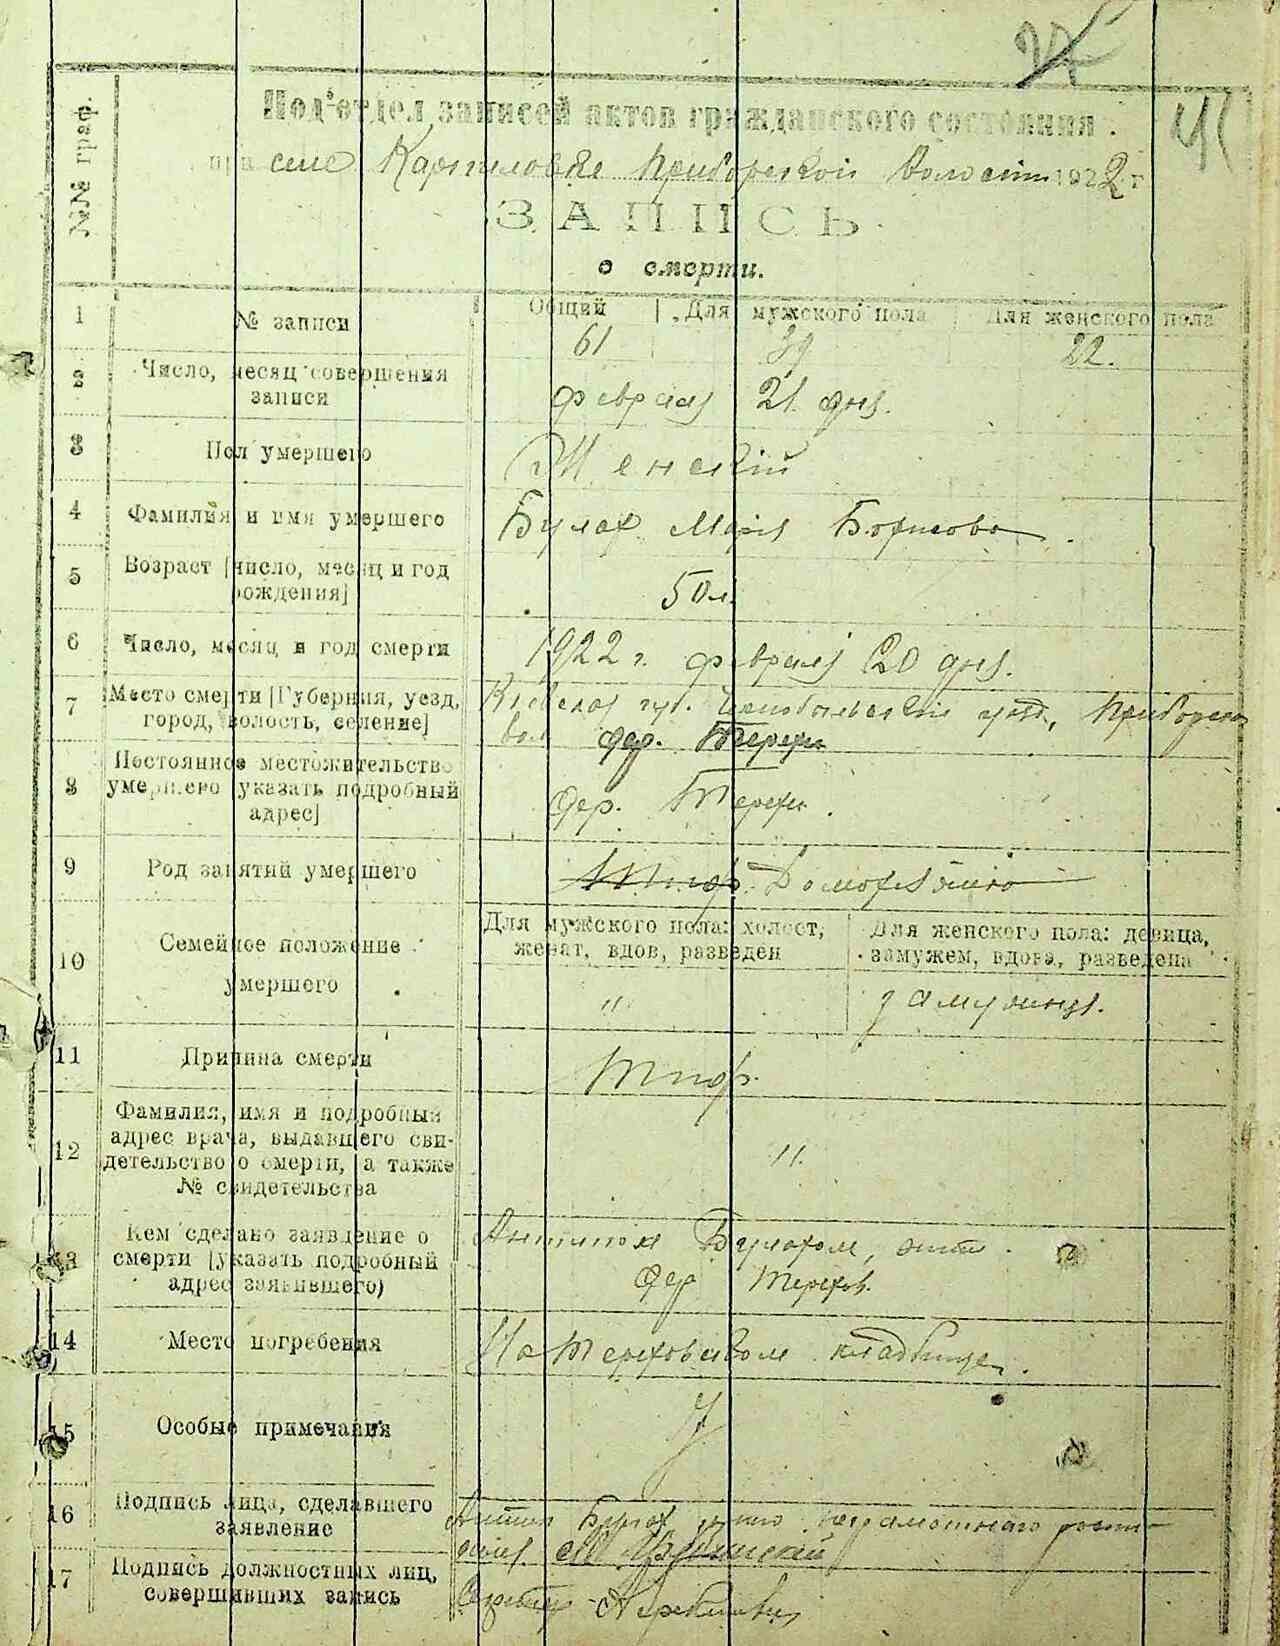 41
Под'отдел записей актов гражданского состояния.
при селе Карпиловке Приборской Волости 1922 г.
№№ граф.
ЗАПИСЬ
о смерти.
1 № записи Общий Для мужского пола Для женского пола
61 39 22.
2 Число, месяц совершения записи
февраля 21 дня.
3 Пол умершего
Женский
4 Фамилия и имя умершего
Булах Мария Борисова
5 Возраст [число, месяц и год рождения]
50 л.
6 Число, месяц и год смерти
1922 г. февраля 20 дня.
7 Место смерти [Губерния, уезд, город, волость, селение]
Киевская губ. Чернобыльский уезд, Приборская
вол. дер. Терехи
8 Постоянное местожительство умершего [указать подробный адрес]
дер. Терехи.
9 Род занятий умершего
Тиф. Домохозяйка
10 Семейное положение умершего
Для мужского пола: холост, женат, вдов, разведен
Для женского пола: девица, замужем, вдова, разведена
" замужняя.
11 Причина смерти
Тиф.
12 Фамилия, имя и подробный адрес врача, выдавшего свидетельство о смерти, а также № свидетельства
".
13 Кем сделано заявление о смерти [указать подробный адрес заявившего)
Антипом Булахом, жит.
дер. Терехов.
14 Место погребения
На Тереховском кладбище.
15 Особые примечания
16 Подпись лица, сделавшего заявление
Антип Булах неграмотнаго
17 Подпись должностных лиц, совершивших запись